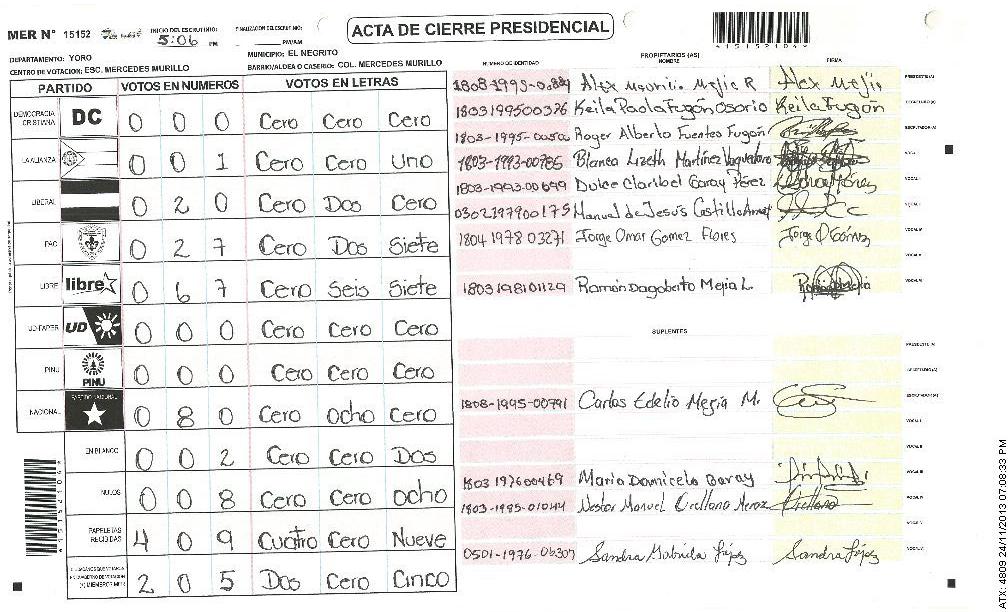 ACTA DE CIERRE PRESIDENCIAL
MER N° 15152
INICIO DEL ESCRUTINIO: 5:06 PM
FINALIZACION DEL ESCRUTINIO: PM/AM
DEPARTAMENTO: YORO
MUNICIPIO: EL NEGRITO
CENTRO DE VOTACION: ESC. MERCEDES MURILLO
BARRIO/ALDEA O CASERIO: COL. MERCEDES MURILLO
PARTIDO VOTOS EN NUMEROS VOTOS EN LETRAS
DEMOCRACIA CRISTIANA DC 0 0 0 Cero Cero Cero
LA ALIANZA 0 0 1 Cero Cero Uno
LIBERAL 0 2 0 Cero Dos Cero
PAC 0 2 7 Cero Dos Siete
LIBRE libre 0 6 7 Cero Seis Siete
UD-FAPER UD 0 0 0 Cero Cero Cero
PINU PINU 0 0 0 Cero Cero Cero
NACIONAL PARTIDO NACIONAL 0 8 0 Cero Ocho Cero
EN BLANCO 0 0 2 Cero Cero Dos
NULOS 0 0 8 Cero Cero Ocho
PAPELETAS RECIBIDAS 4 0 9 Cuatro Cero Nueve
2 0 5 Dos Cero Cinco
PROPIETARIOS (AS)
NUMERO DE IDENTIDAD NOMBRE FIRMA
Alex Mejia R Alex Mejia PRESIDENTE(A)
1803199500326 Keila Paola Fugón Osorio Keila Fugón SECRETARIO(A)
1803-1995-00500 Roger Alberto Fuentes Fugón ESCRUTADOR(A)
1803-1993-00785 Blanca Lizeth Martínez
1803-1993-00699 Dulce Claribel Garay Pérez
0302197900175 Manuel de Jesús Castillo
1804 1978 03271 Jorge Omar Gomez Flores
1803198101129 Ramón Dagoberto Mejia L.
SUPLENTES
PRESIDENTE(A)
SECRETARIO(A)
1808-1995-00791 Carlos Edelio Mejia M. ESCRUTADOR(A)
1803 197600469 Maria Domicela Garay
1803-1995-01044 Nestor Manuel Orellana Orellana
0501-1976-06307 Sandra Sandra
*151521046*
*151521046*
ATX: 4809 24/11/2013 07:08:33 PM